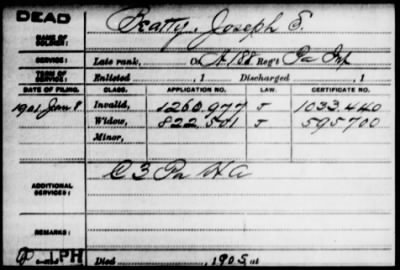 DEAD
NAME OF SOLDIER: Beatty, Joseph S.
SERVICE: Late rank, Co A 188 Reg't Pa Inf
TERM OF SERVICE: Enlisted , 1 Discharged , 1
DATE OF FILING. CLASS. APPLICATION NO. LAW. CERTIFICATE NO.
1901 Jan 8 Invalid, 1260.977 J 1033.440
Widow, 822.501 J 595700
Minor,
ADDITIONAL SERVICES: C 3 Pa H A
REMARKS:
LPH Died , 1905, at